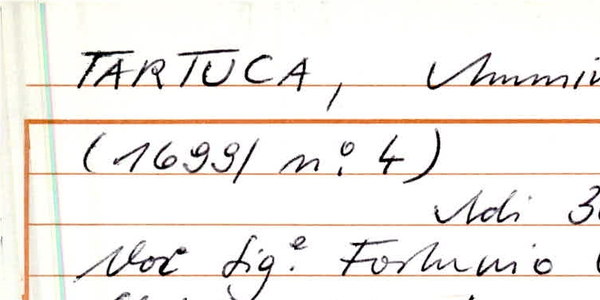 TARTUCA,
(1699/ n.° 4)
Adi
Noi Sig.e Fortunio